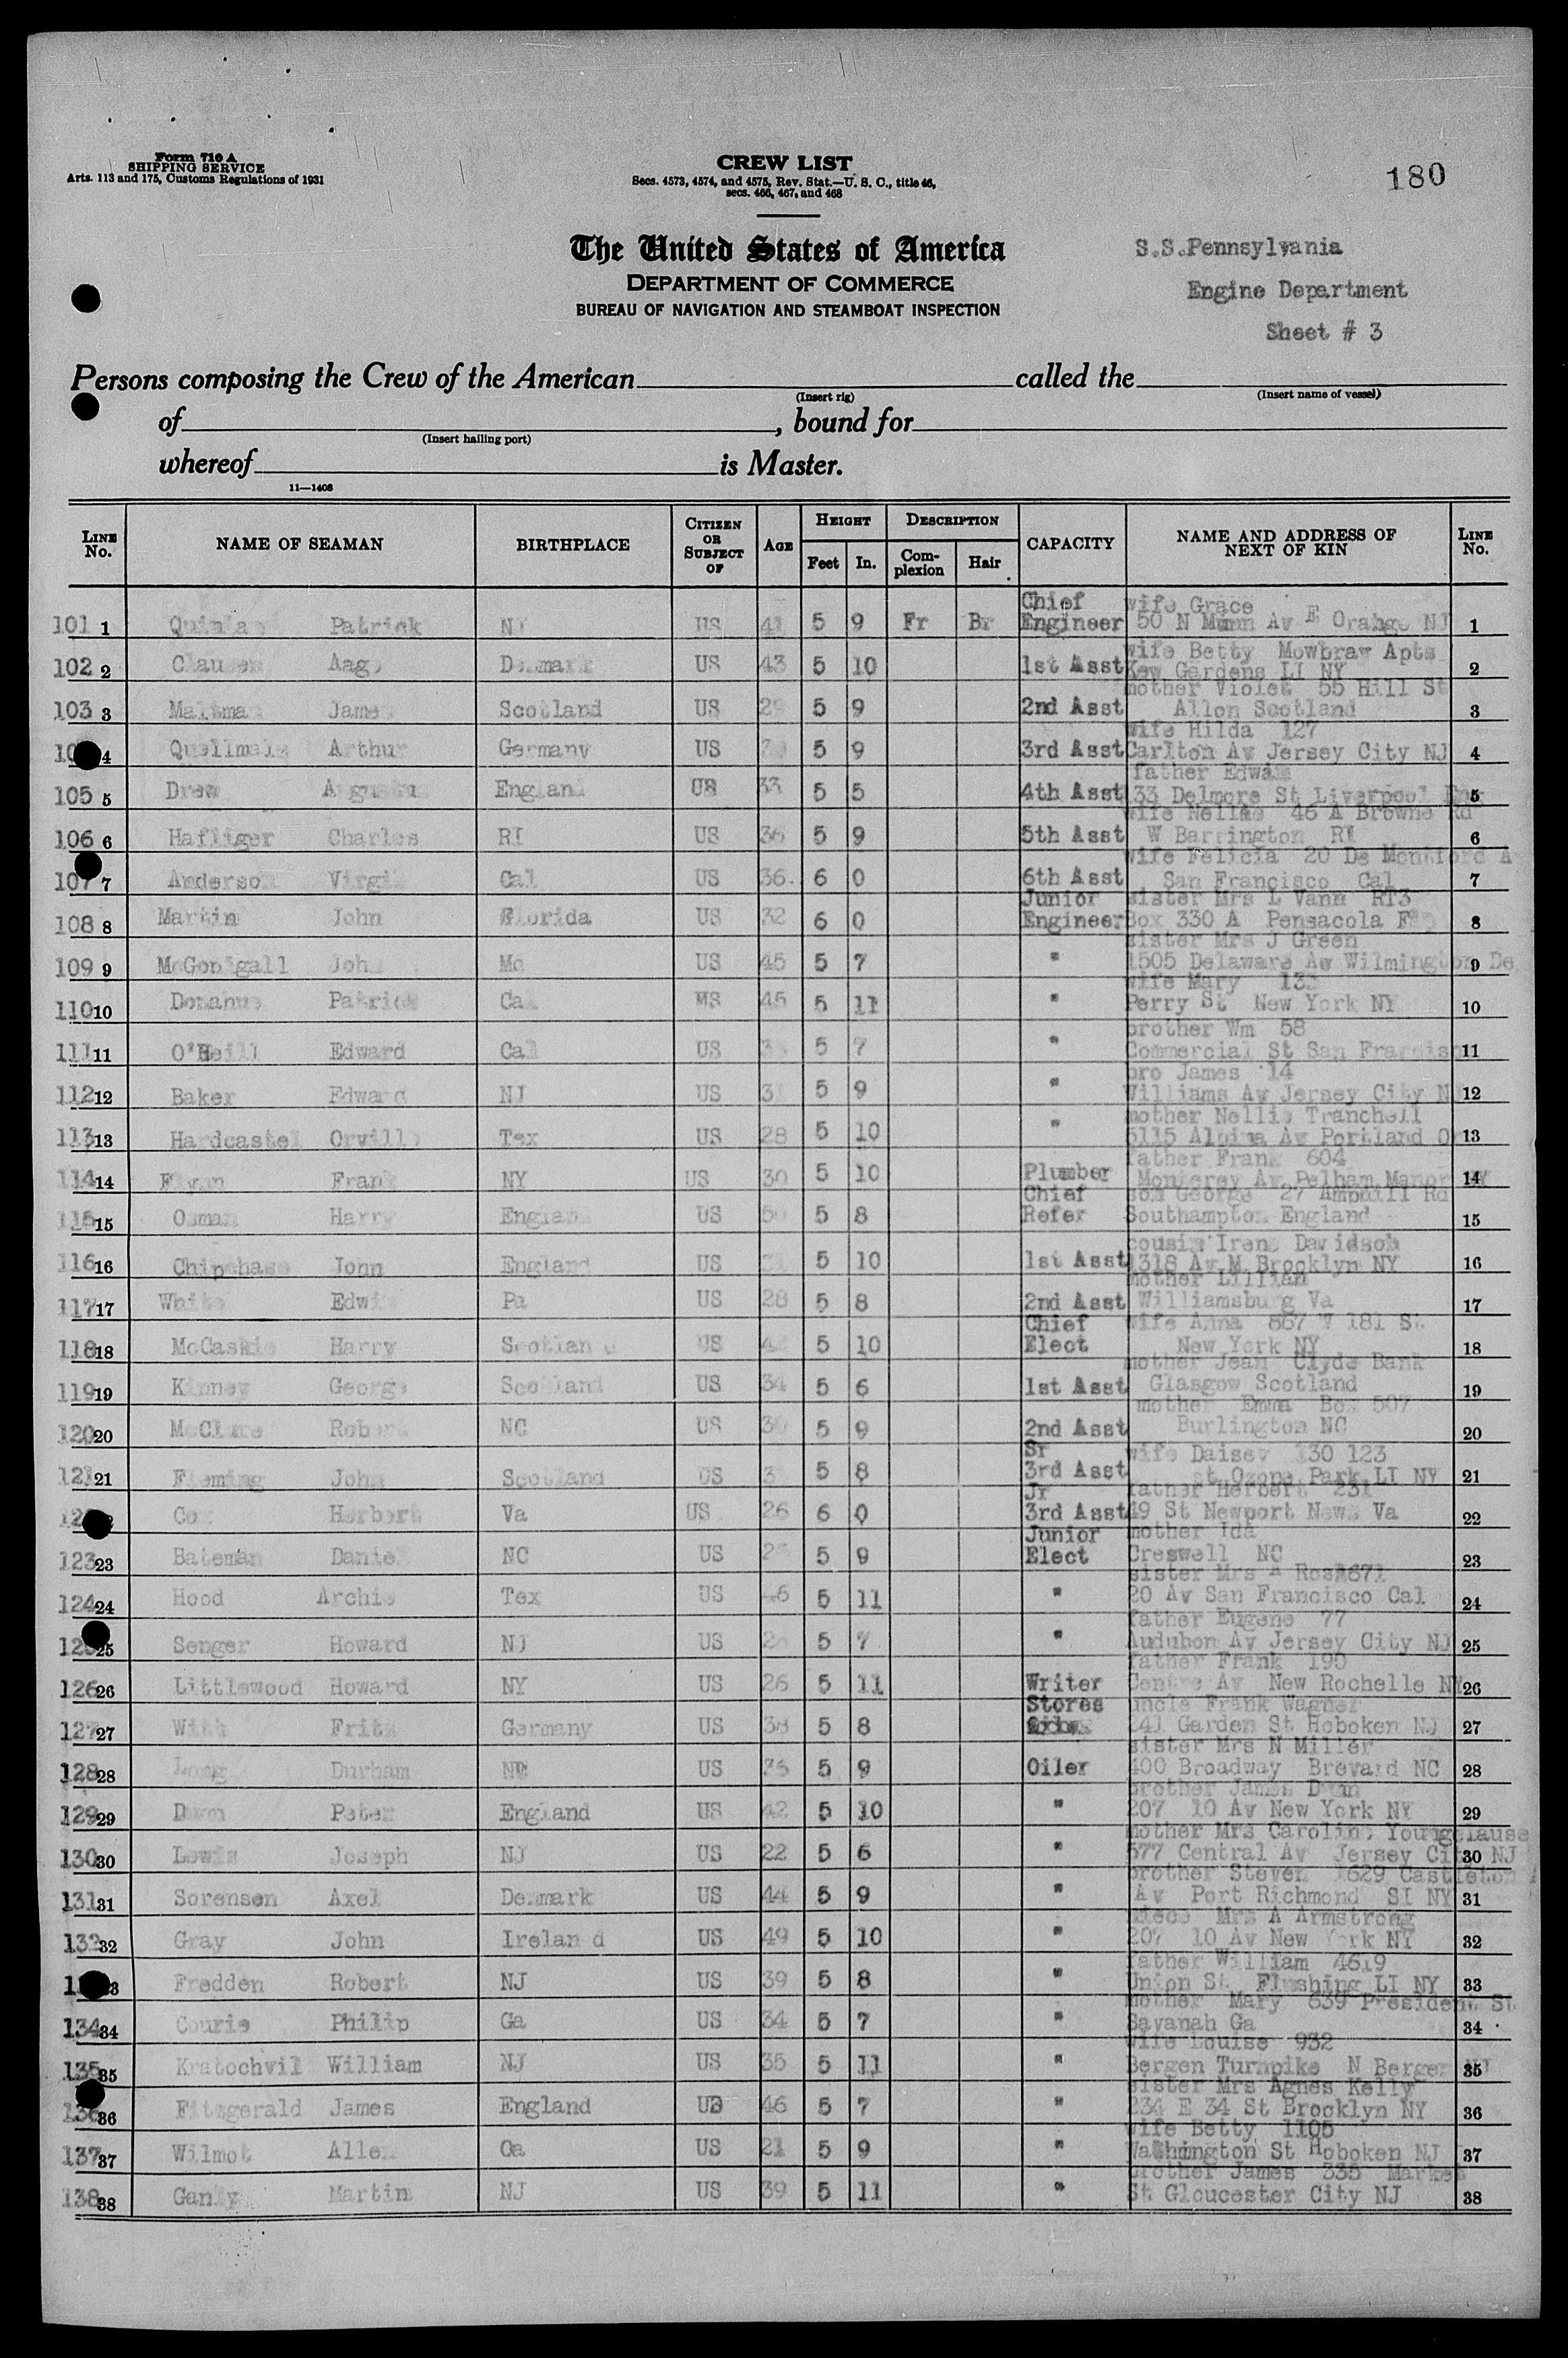 Form 710 A
SHIPPING SERVICE
Arts. 113 and 175, Customs Regulations of 1931
CREW LIST
Secs. 4573, 4574, and 4575, Rev. Stat.—U. S. C., title 46,
secs. 466, 467, and 468
180
The United States of America
DEPARTMENT OF COMMERCE
BUREAU OF NAVIGATION AND STEAMBOAT INSPECTION
S.S.Pennsylvania
Engine Department
Sheet # 3
Persons composing the Crew of the American called the
(Insert rig) (Insert name of vessel)
of , bound for
(Insert hailing port)
whereof is Master.
11—1408
LINE No. NAME OF SEAMAN BIRTHPLACE CITIZEN OR SUBJECT OF AGE HEIGHT Feet In. DESCRIPTION Complexion Hair CAPACITY NAME AND ADDRESS OF NEXT OF KIN LINE No.
Chief wife Grace
101 1 Quinlan Patrick NJ US 41 5 9 Fr Br Engineer 50 N Munn Av E Orange NJ 1
wife Betty Mowbray Apts
102 2 Clausen Aage Denmark US 43 5 10 1st Asst Kew Gardens LI NY 2
mother Violet 55 Hill St
103 3 Maltman James Scotland US 29 5 9 2nd Asst Allon Scotland 3
wife Hilda 127
4 Quellmalz Arthur Germany US 5 9 3rd Asst Carlton Av Jersey City NJ 4
father Edwam
105 5 Drew England US 33 5 5 4th Asst 33 Delmore St Liverpool Eng 5
wife Nellie 46 A Browns Rd
106 6 Hafliger Charles RI US 36 5 9 5th Asst W Barrington RI 6
wife Felicia 20 De Montford Av
107 7 Anderson Virgil Cal US 36. 6 0 6th Asst San Francisco Cal 7
Junior sister Mrs L Vann RT3
108 8 Martin John Florida US 32 6 0 Engineer Box 330 A Pensacola 8
sister Mrs J Green
109 9 McGonigall John US 45 5 7 " 1505 Delaware Av Wilmington De 9
wife Mary
110 10 Donahue Patrick Ca US 45 5 11 " Perry St New York NY 10
brother Wm 58
111 11 O'Neill Edward Cal US 5 7 " Commercial St San Francisc 11
bro James 14
112 12 Baker Edward NJ US 5 9 " Williams Av Jersey City N 12
mother Nellie Tranchell
113 13 Hardcastel Orville Tex US 28 5 10 " 5115 Alpina Av Portland Or 13
father Frank 604
114 14 Flynn Frank NY US 30 5 10 Plumber Monterey Av Pelham Manor NY 14
Chief son George 27 Amphill Rd
115 15 Osman Harry England US 50 5 8 Refer Southampton England 15
cousin Irene Davidson
116 16 Chipchase John England US 5 10 1st Asst 1318 Av M Brooklyn NY 16
mother Lillian
117 17 White Edwin Pa US 28 5 8 2nd Asst Williamsburg Va 17
Chief wife Anna 667 W 181 St
118 18 McCaskie Harry Scotland US 42 5 10 Elect New York NY 18
mother Jean Clyde Bank
119 19 Kinney George Scotland US 34 5 6 1st Asst Glasgow Scotland 19
mother Emma Box 507
120 20 McClure Robert NC US 5 9 2nd Asst Burlington NC 20
Sr wife Daisey 130 123
121 21 Fleming John Scotland US 5 8 3rd Asst st Ozone Park LI NY 21
Jr father Herbert 231
22 Cox Herbert Va US 26 6 0 3rd Asst 49 St Newport News Va 22
Junior mother Ida
123 23 Bateman Daniel NC US 5 9 Elect Creswell NC 23
sister Mrs A Ross 671
124 24 Hood Archie Tex US 46 5 11 " 20 Av San Francisco Cal 24
father Eugene 77
25 Senger Howard NJ US 5 7 " Audubon Av Jersey City NJ 25
father Frank 190
126 26 Littlewood Howard NY US 26 5 11 Writer Centre Av New Rochelle NY 26
Stores uncle Frank Wagner
127 27 Witt Fritz Germany US 38 5 8 241 Garden St Hoboken NJ 27
sister Mrs N Miller
128 28 Long Durham NC US 35 5 9 Oiler 400 Broadway Brevard NC 28
brother James Dunn
129 29 Dunn Peter England US 42 5 10 " 207 10 Av New York NY 29
mother Mrs Caroline Youngclause
130 30 Lewis Joseph NJ US 22 5 6 " 577 Central Av Jersey City NJ 30
brother Steven 1629 Castleton A
131 31 Sorensen Axel Denmark US 44 5 9 " Av Port Richmond SI NY 31
niece Mrs A Armstrong
132 32 Gray John Irelan d US 49 5 10 " 207 10 Av New York NY 32
father William 4619
33 Fredden Robert NJ US 39 5 8 " Union St Flushing LI NY 33
mother Mary 639 President St
134 34 Courie Philip Ga US 34 5 7 " Savanah Ga 34
wife Louise 932
135 35 Kratochvil William NJ US 35 5 11 " Bergen Turnpike N Bergen NJ 35
sister Mrs Agnes Kelly
136 36 Fitzgerald James England US 46 5 7 " 234 E 34 St Brooklyn NY 36
wife Betty 1105
137 37 Wilmot Allen Ga US 21 5 9 " Washington St Hoboken NJ 37
brother James 335 Market
138 38 Ganly Martin NJ US 39 5 11 " St Gloucester City NJ 38